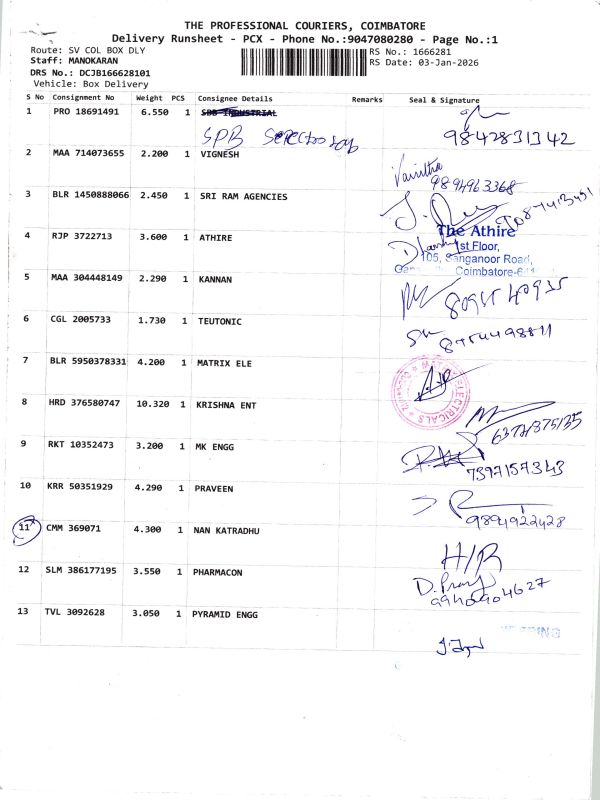 THE PROFESSIONAL COURIERS, COIMBATORE
Delivery Runsheet - PCX - Phone No.:9047080280 - Page No.:1
Route: SV COL BOX DLY
RS No.: 1666281
Staff: MANOKARAN
RS Date: 03-Jan-2026
DRS No.: DCJB166628101
Vehicle: Box Delivery
S No Consignment No Weight PCS Consignee Details Remarks Seal & Signature
1 PRO 18691491 6.550 1 SBB INDUSTRIAL
SPB
9842831342
2 MAA 714073655 2.200 1 VIGNESH
Vanitha
9894963368
3 BLR 1450888066 2.450 1 SRI RAM AGENCIES
4 RJP 3722713 3.600 1 ATHIRE
The Athire
1st Floor,
105, Sanganoor Road,
Coimbatore-641
5 MAA 304448149 2.290 1 KANNAN
6 CGL 2005733 1.730 1 TEUTONIC
8754498811
7 BLR 5950378331 4.200 1 MATRIX ELE
8 HRD 376580747 10.320 1 KRISHNA ENT
9 RKT 10352473 3.200 1 MK ENGG
7397157343
10 KRR 50351929 4.290 1 PRAVEEN
9894922428
11 CMM 369071 4.300 1 NAN KATRADHU
H/R
12 SLM 386177195 3.550 1 PHARMACON
9940904627
13 TVL 3092628 3.050 1 PYRAMID ENGG